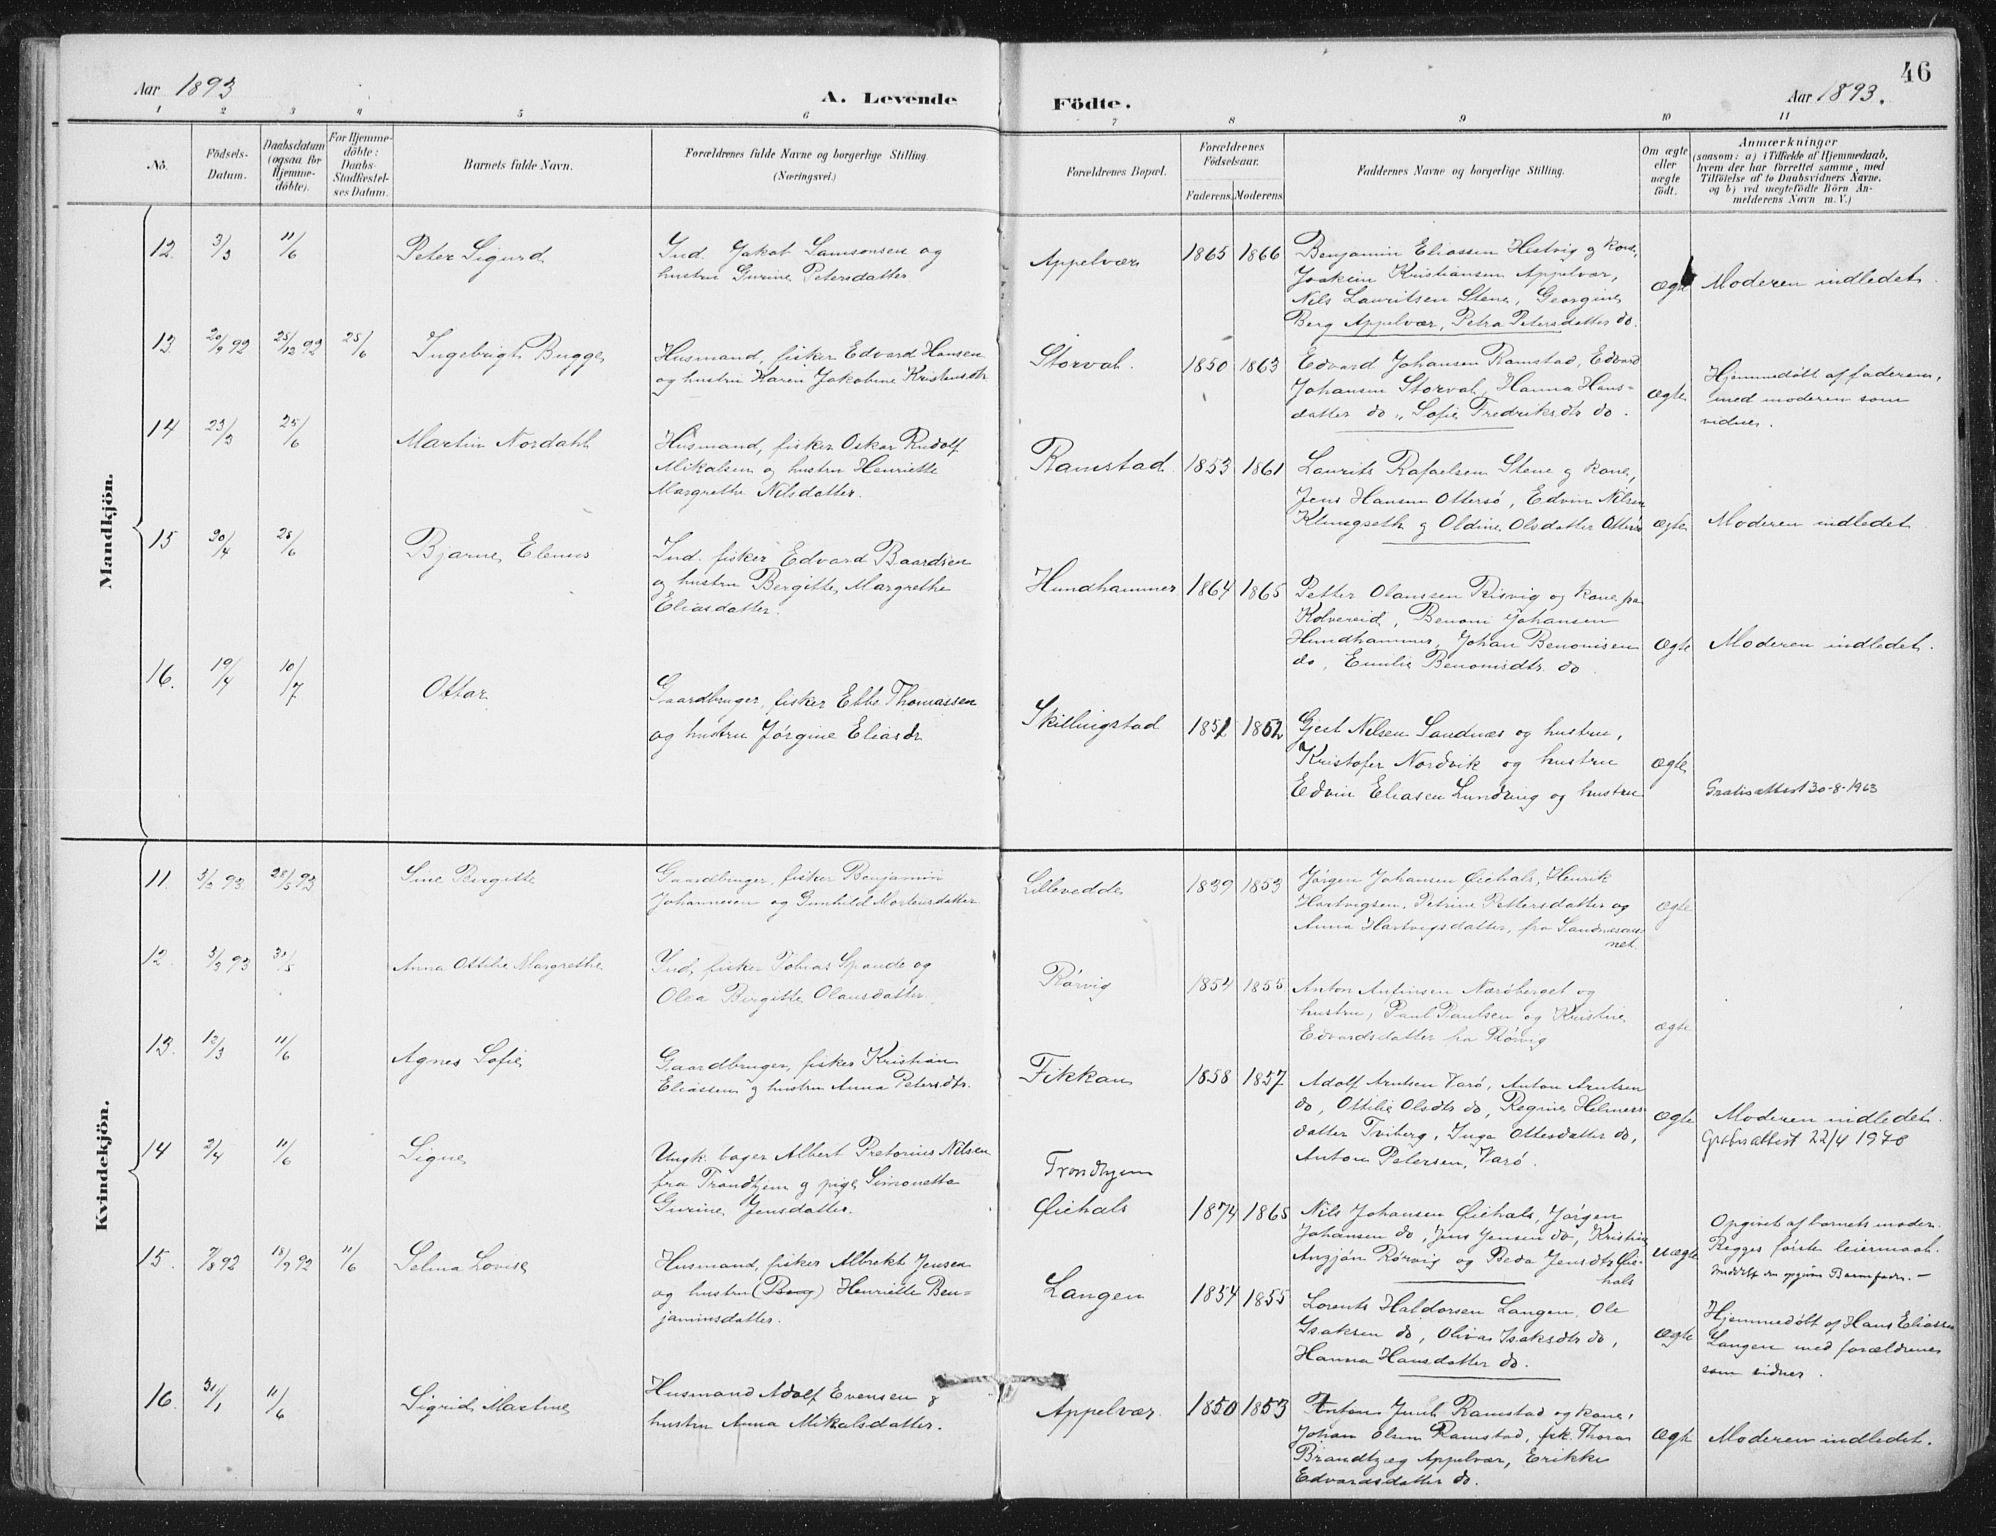 46
Aar 1893
A. Levende Födte.
Aar 1893.
1 2 3 4 5 6 7 8 9 10 11
No.
Födsels-
Datum.
Daabsdatum
(ogsaa for
Hjemme-
döbte).
For Hjemme-
döbte:
Daabs-
Stadfæstel-
ses Datum.
Barnets fulde Navn.
Forældrenes fulde Navne og borgerlige Stilling.
(Næringsvei.)
Forældrenes Bopæl.
Forældrenes
Födselsaar.
Faderens. Moderens.
Faddernes Navne og borgerlige Stilling.
Om ægte
eller
uægte
født.
Anmærkninger
(saasom: a) i Tilfælde af Hjemmedaab,
hvem der har forrettet samme, med
Tilföielse af to Daabsvidners Navne,
og b) ved uægtefödte Börn An-
melderens Navn m. V.)
Mandkjön.
12. 3/3 11/6
Peter Sigurd
Ind. Jakob Samsonsen og
hustru Gurine Petersdatter
Appelvær
1865 1866
Benjamin Eliassen Hestvig og kone,
Joakim Kristiansen Appelvær,
Nils Lauritsen Stene, Georgine
Berg Appelvær, Petra Petersdatter do.
Ægte
Moderen indledet.
13. 20/9 92 25/12 92 25/6
Ingebrigt Bugge
Husmand, fisker Edvard Hansen
og hustru Karen Jakobine Kristensdtr
Storval.
1850 1863
Edvard Johansen Ramstad, Edvard
Johansen Storval, Hanna Hans-
datter do, Sofie Fredriksdtr do.
Ægte
Hjemmedøbt af faderen,
med moderen som
vidne.
14 23/3 25/6
Martin Nordahl
Husmand, fisker Oskar Rudolf
Mikalsen og hustru Henriette
Margrethe Nilsdatter.
Ramstad
1853 1861
Laurits Rafaelsen Stene og kone,
Jens Hansen Ottersø, Edvin Nilsen
Klungseth og Oldine Olsdatter Ottersø
Ægte
Moderen indledet
15 30/4 25/6
Bjarne Elenus
Ind. fisker Edvard Baardsen
og hustru Bergitte Margrethe
Eliasdatter.
Hundhammer
1864 1865
Petter Olaussen Risvig og kone fra
Kolvereid, Benoni Johansen
Hundhammer, Johan Benonisen
do, Emilie Benonisdtr. do.
Ægte
Moderen indledet.
16. 19/4 10/7
Ottar
Gaardbruger, fisker Ebbe Thomassen
og hustru Jørgine Eliasdtr
Skillingstad
1851 1852
Gjert Nilsen Sandnæs og hustru,
Kristofer Nordvik og hustru
Edvin Eliasen Lundring og hustru
Ægte
Gratisattest 30-8-1963
Kvindekjön.
11. 3/2 93. 28/5 93
Sine Birgitte
Gaardbruger, fisker Benjamin
Johannesen og Gunhild Mortensdatter
Lillevedde
1839 1853
Jørgen Johansen Øiehals, Henrik
Hartvigsen, Petrine Pettersdatter og
Anna Hartvigsdatter, fra Sandnesau-
net
Ægte
12. 3/3 93 31/5
Anna Ottilie Margrethe
Ind, fisker Tobias Spande og
Olea Birgitte Olausdatter
Rørvig
1854 1855
Anton Antinsen Nærøberget og
hustru, Paul Paulsen og Kristine
Edvardsdatter fra Rørvig
ægte
13. 12/3 11/6
Agnes Sofie
Gaardbruger, fisker Kristian
Eliassen og hustru Anna Petersdtr.
Fikkan
1858 1857
Adolf Arntsen Varø, Anton Arntsen
do, Ottilie Olsdtr do, Regine Helmers-
datter Tviberg, Inga Ottesdatter do,
Anton Petersen, Varø.
Ægte
Moderen indledet.
Gratisattest 22/4 1970
14 2/4 11/6
Signe
Ungk. bager Albert Pretorius Nilsen
fra Trondhjem og pige Simonette
Gurine Jensdatter.
Trondhjem
Øiehals
1874 1865
Nils Johansen Øiehals, Jørgen
Johansen do, Jens Jensen do, Kristine
Anzjøn Rørvig og Beda Jensdtr Øie-
hals
uægte
Opgivet af barnets moder.
Begges første leiermaal.
15. 7/8 92 18/9 92 11/6
Selma Lovise
Husmand, fisker Albrekt Jensen
og hustru (Berg) Henriette Ben-
jaminsdatter.
Langen
1854 1855
Lorents Haldorsen Langen, Ole
Isaksen do, Oliva Isaksdtr do,
Hanna Hansdatter do.
Ægte
Hjemmedøbt af Hans Eliassen
Langen med forældrene
som vidner.
16. 31/1 11/6
Sigrid Martine
Husmand Adolf Evensen &
hustru Anna Mikalsdatter.
Appelvær.
1850 1853
Anton Juul Ramstad og kone,
Johan Olsen Ramstad, frk. Thora
Brandtzæg Appelvær, Erikke
Edvardsdatter do.
Ægte
Moderen indledet.